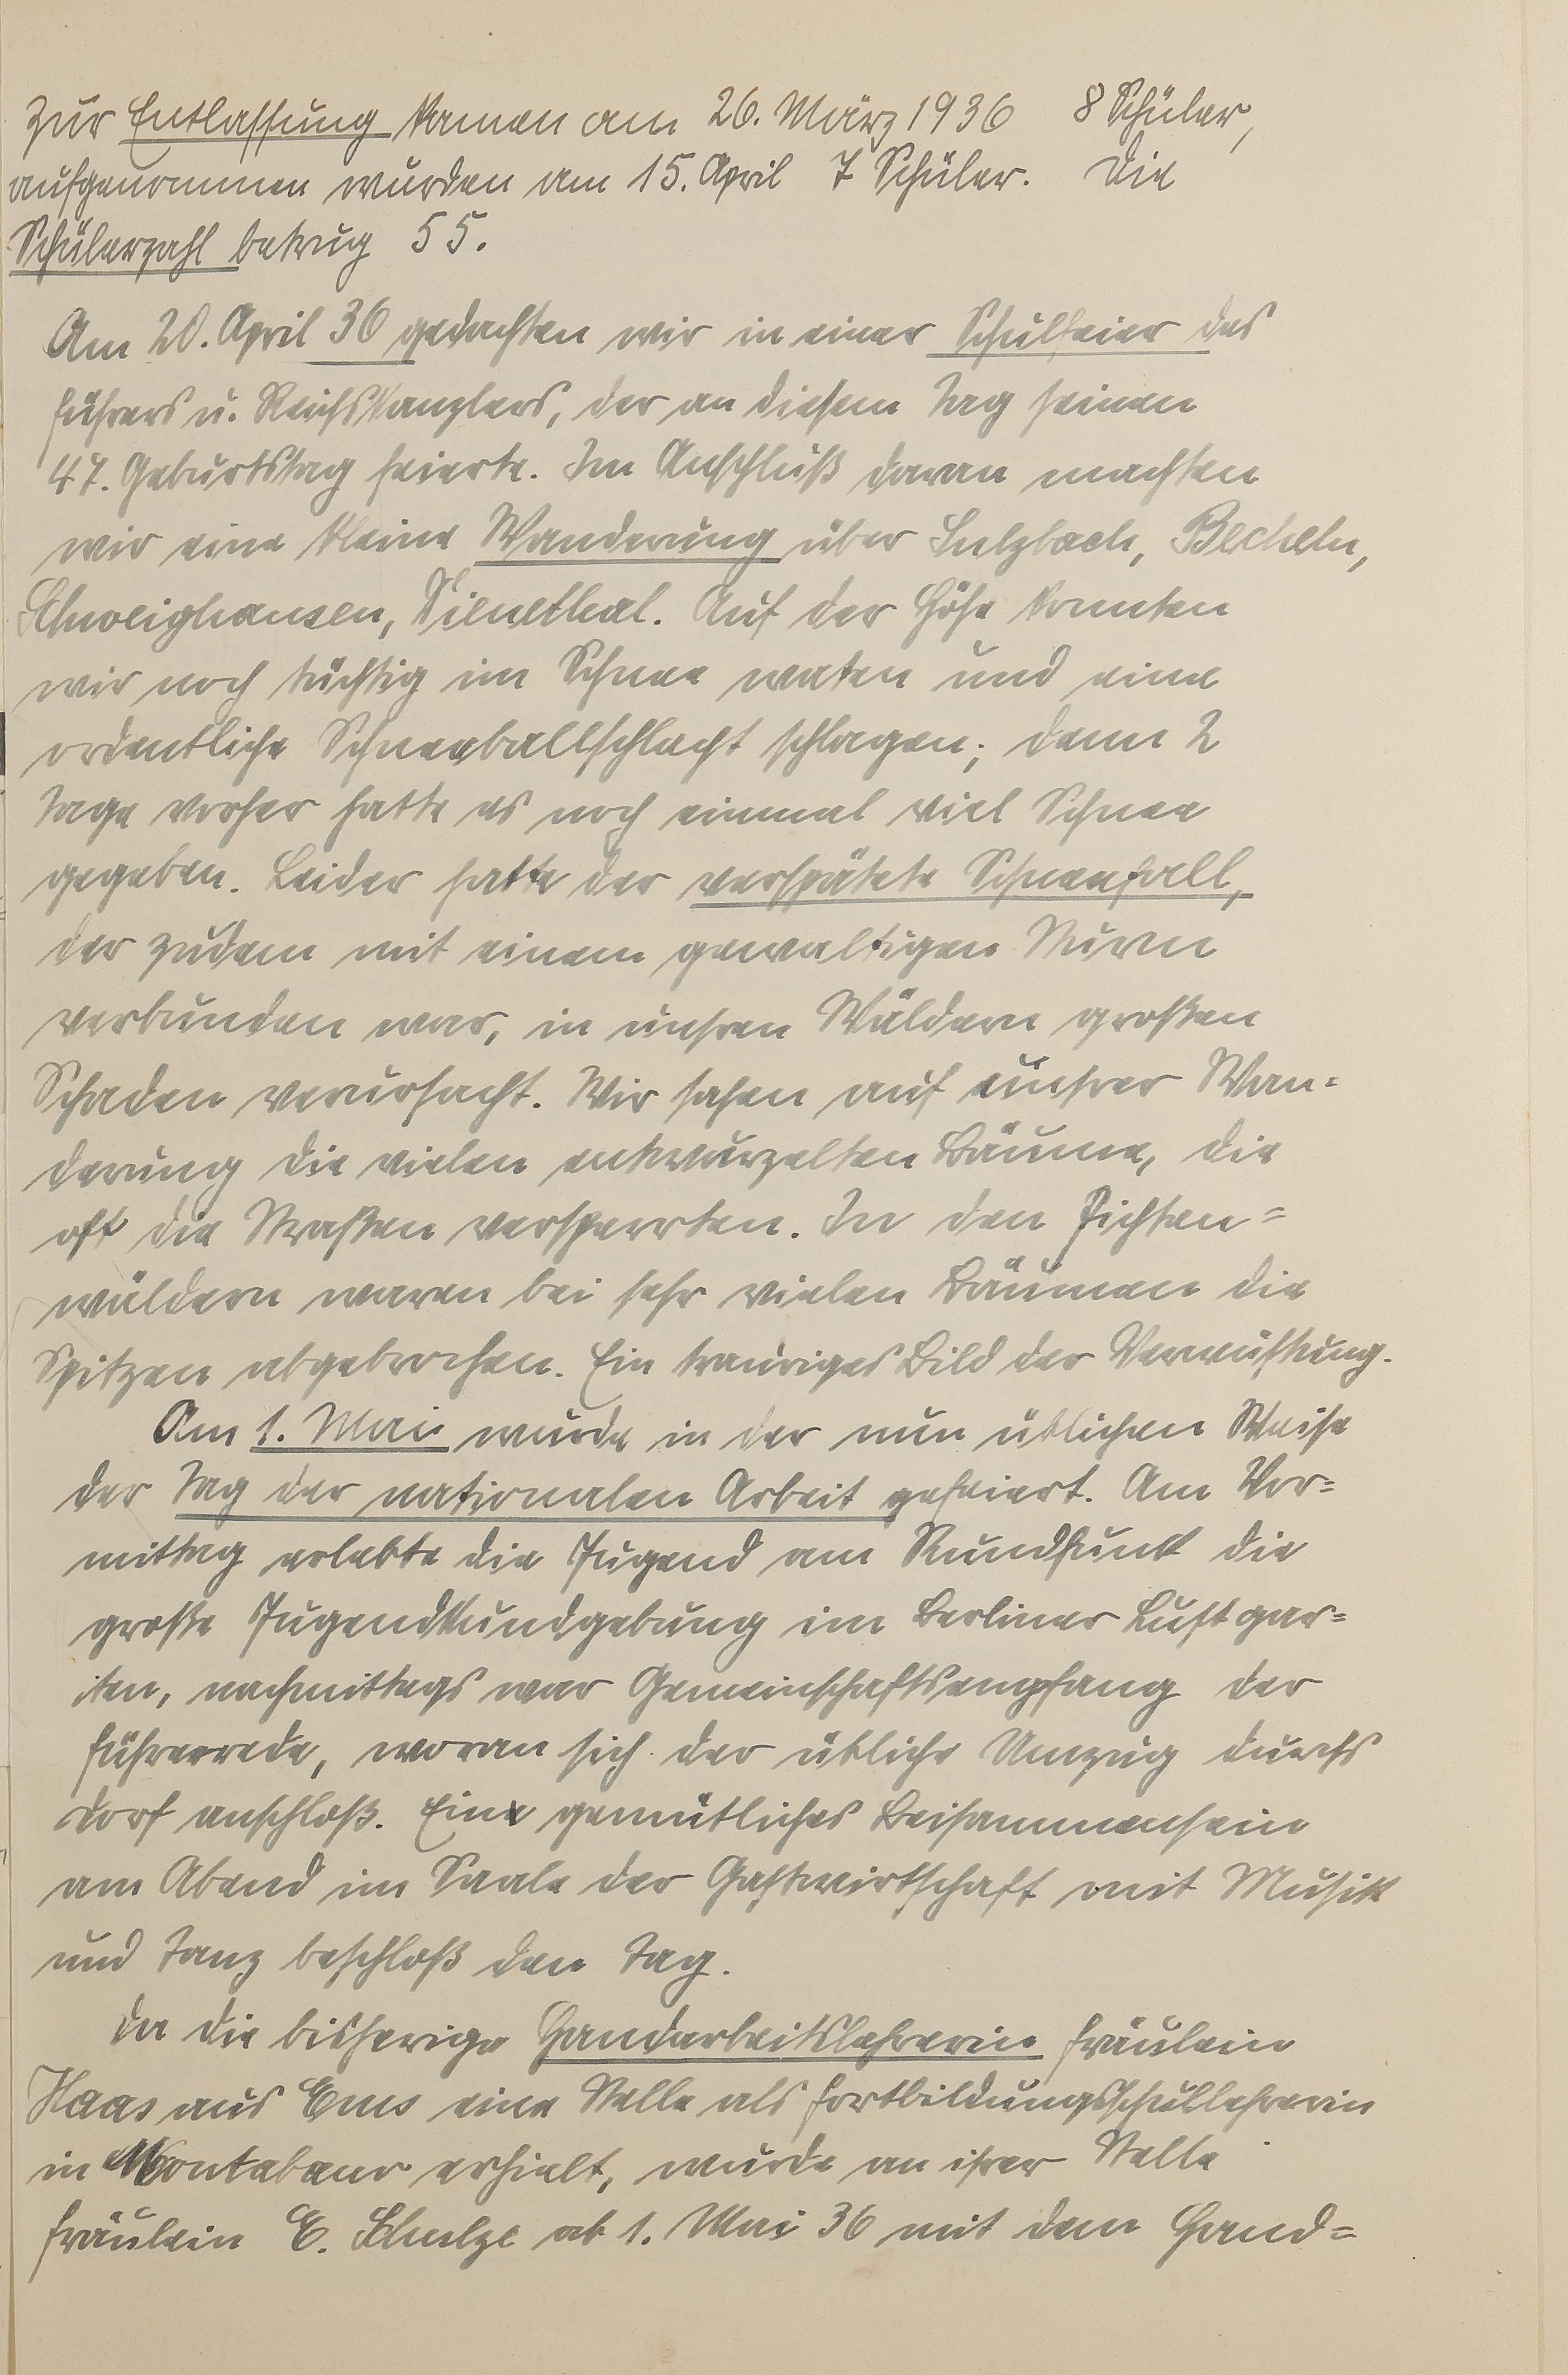 Zur Entlassung kamen am 26. März 1936 8 Schüler,
aufgenommen wurden am 15. April 7 Schüler. Die
Schülerzahl betrug 55.
Am 20. April 36 gedachten wir in einer Schulfeier des
Führers u. Reichskanzlers, der an diesem Tag seinen
47. Geburtstag feierte. Im Anschluß daran machten
wir eine kleine Wanderung über Sulzbach, Becheln,
Schweighausen, Dienethal. Auf der Höhe konnten
wir noch tüchtig im Schnee waten und eine
ordentliche Schneeballschlacht schlagen; denn 2
Tage vorher hatte es noch einmal viel Schnee
gegeben. Leider hatte der verspätete Schneefall,
der zudem mit einem gewaltigen Sturm
verbunden war, in unsren Wäldern großen
Schaden verursacht. Wir sahen auf unsrer Wan-
derung die vielen entwurzelten Bäume, die
oft die Straßen versperrten. In den Fichten-
wäldern waren bei sehr vielen Bäumen die
Spitzen abgebrochen. Ein trauriges Bild der Verwüstung.
Am 1. Mai wurde in der nun üblichen Weise
der Tag der nationalen Arbeit gefeiert. Am Vor-
mittag erlebte die Jugend am Rundfunk die
große Jugendkundgebung im Berliner Lustgar-
ten, nachmittags war Gemeinschaftsempfang der
Führerrede, woran sich der übliche Umzug durchs
Dorf anschloß. Ein gemütliches Beisammensein
am Abend im Saale der Gastwirtschaft mit Musik
und Tanz beschloß den Tag.
Da die bisherige Handarbeitslehrerin Fräulein
Haas aus Ems eine Stelle als Fortbildungsschullehrerin
in Montabaur erhielt, wurde an ihrer Stelle
Fräulein E. Schulze ab 1. Mai 36 mit dem Hand-